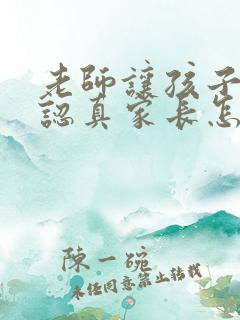 老師讓孩子
認真家長怎
陳一碗
未經同意禁止轉載